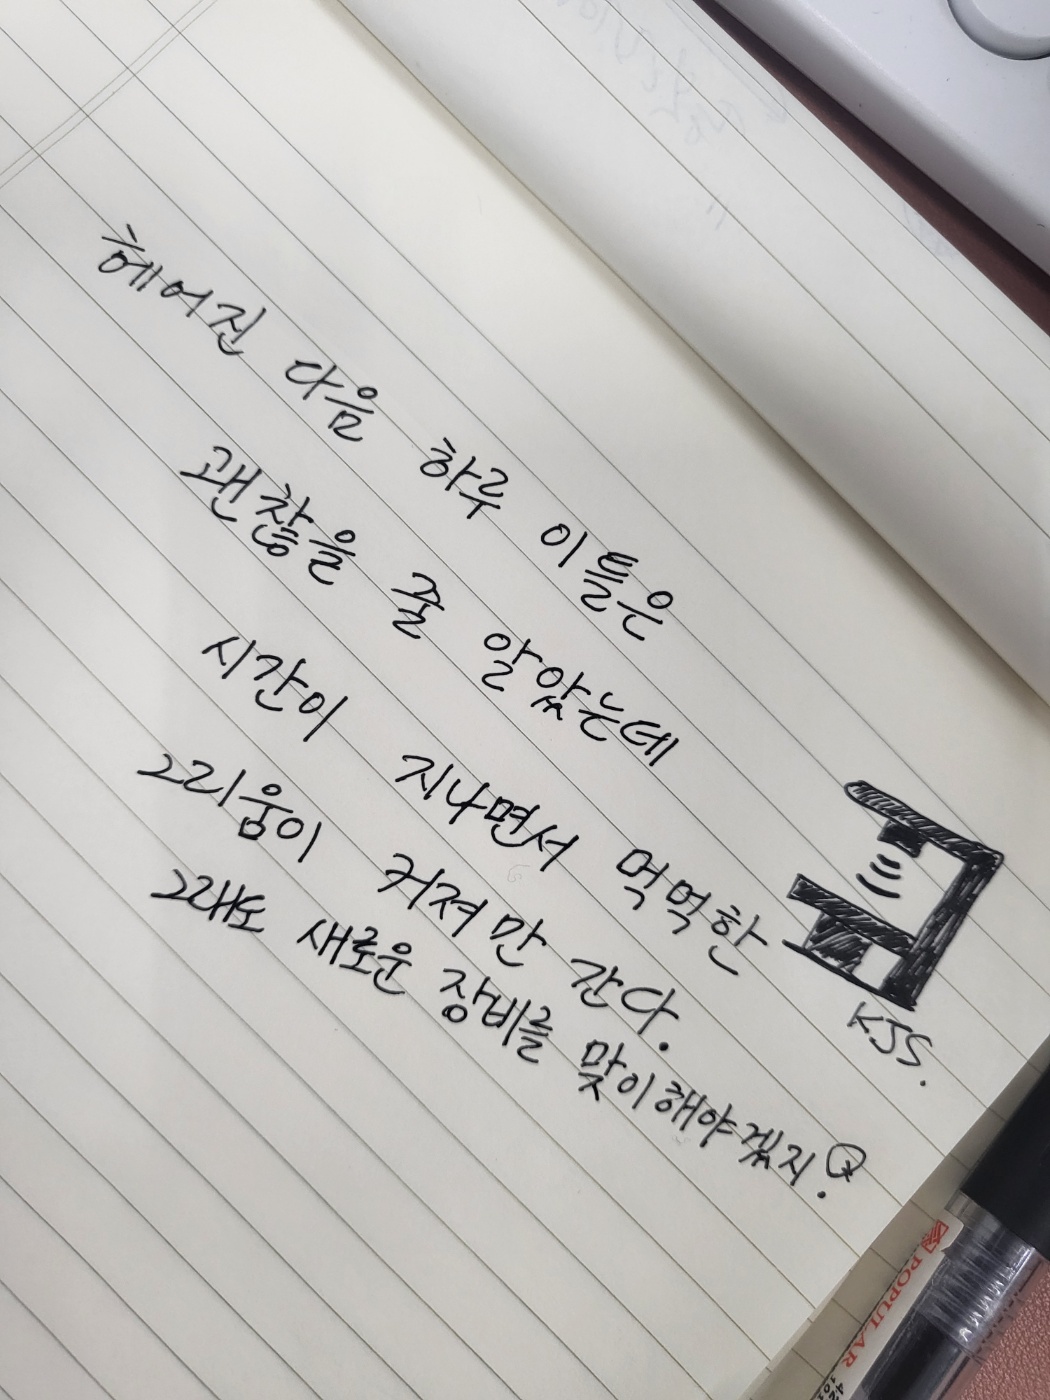 헤어진 다음 하루 이틀은
괜찮을 줄 알았는데
시간이 지나면서 먹먹한
그리움이 커져만 간다.
그래도 새로운 장비를 맞이해야겠지?
KJS.
POPULAR